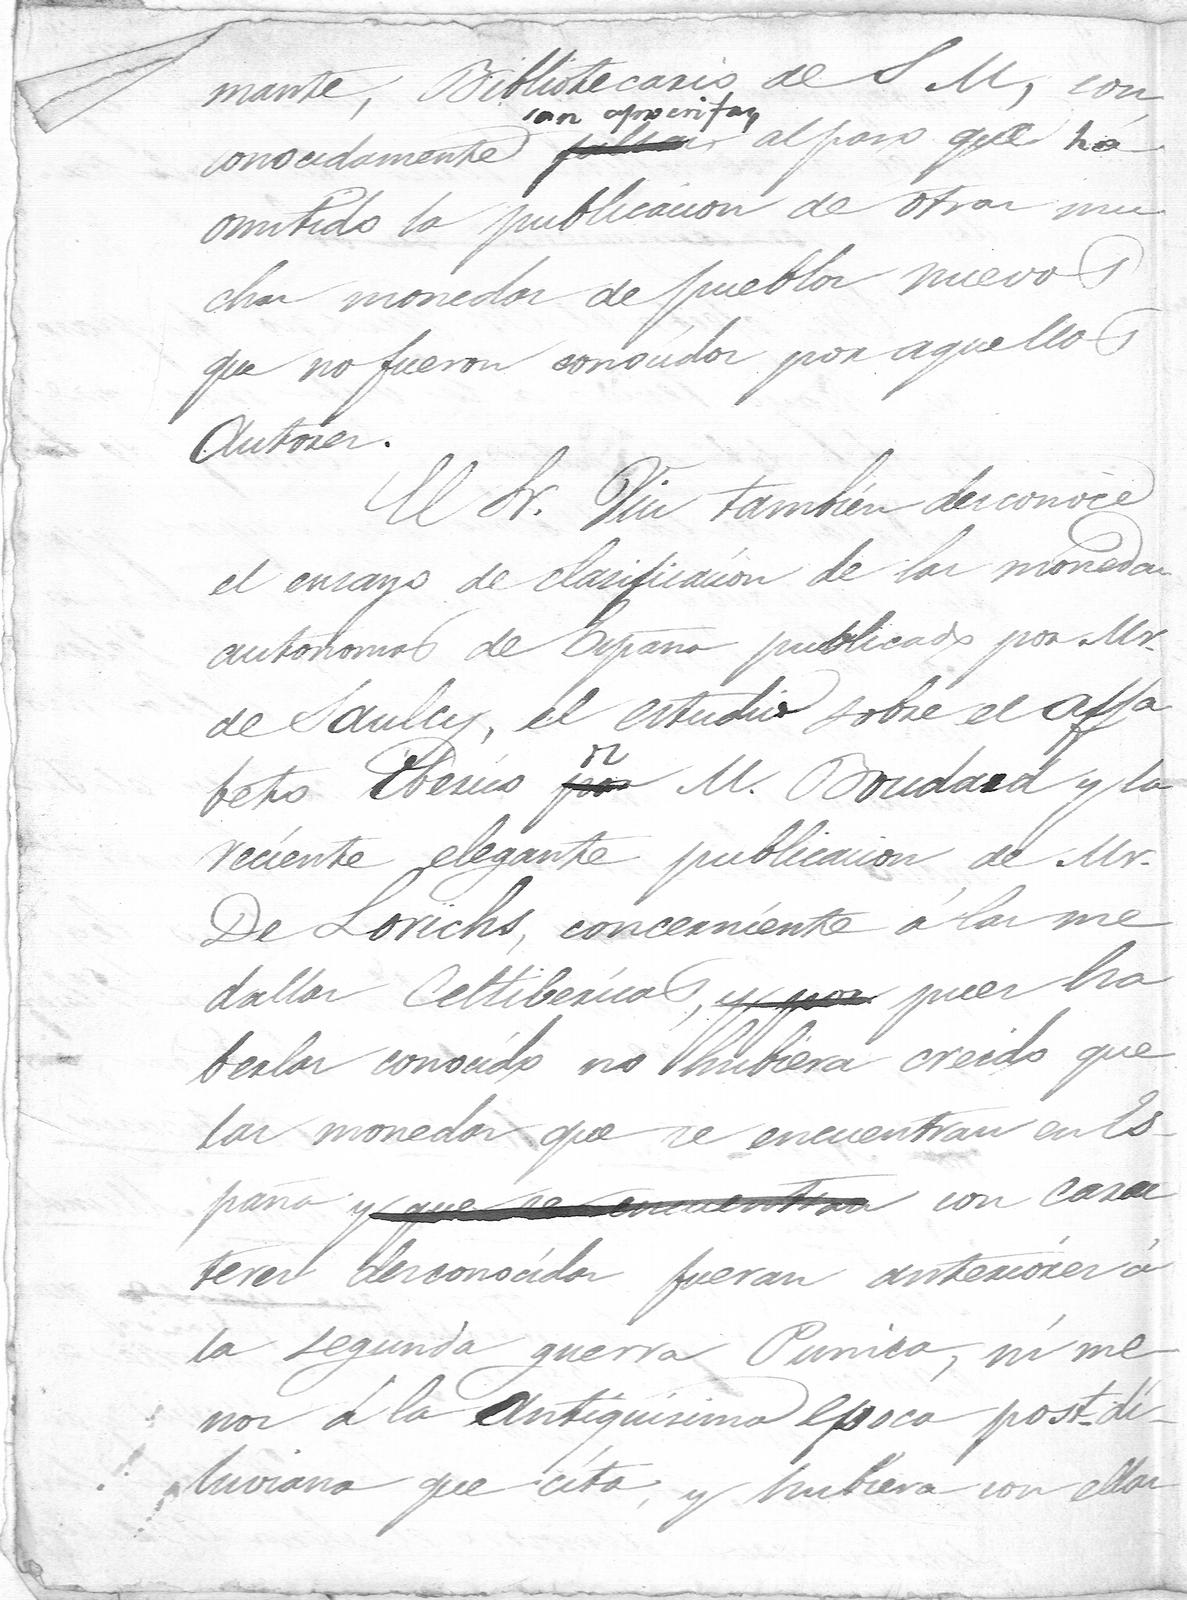 mante, Bibliotecario de S M, con
san apocrifas
conocidamente falsas al paso que há
omitido la publicacion de otras mu
chas monedas de pueblos nuevos
que no fueron conocidos por aquellos
Autores.
El Sr. Viu también desconoce
el ensayo de clasificación de las monedas
autonomas de España publicado por Mr.
de Saulcy, el estudio sobre el alfa
beto Iberico por M. Boudard y la
reciente elegante publicacion de Mr.
De Lorichs, concerniente á las me
dallas Celtibericas, y por pues ha
berlas conocido no hubiera creido que
las monedas que se encuentran en Es-
paña y que se encuentran con carac
teres desconocidos fueran anteriores á
la segunda guerra Punica, ni me
nos á la Antiquisima epoca post-di-
luviana que cita, y hubiera con ellas